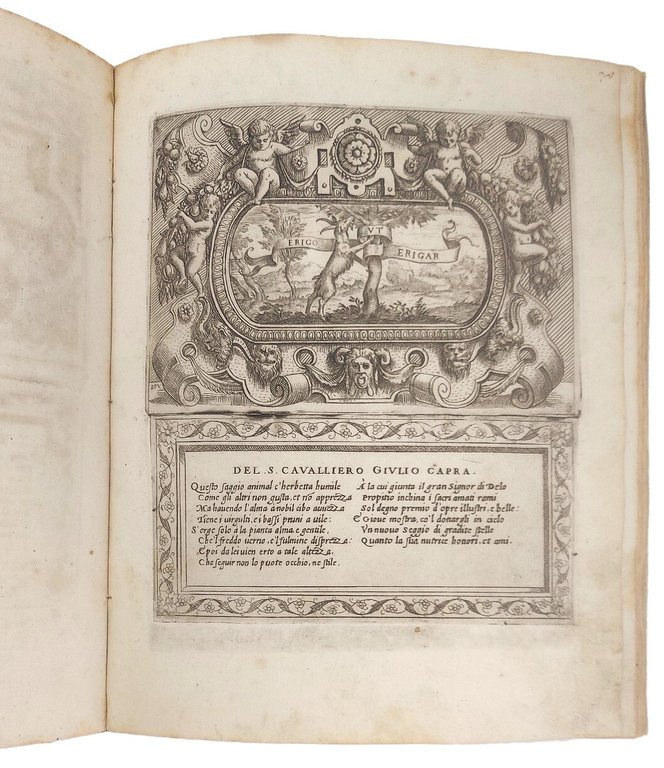 ERIGO
VT
ERIGAR
DEL S. CAVALLIERO GIVLIO CAPRA.
Questo saggio animal c'herbetta humile
Come gli altri non gusta, et nō apprezza
Ma havendo l'alma à nobil cibo avezza
Tiene i virgulti, e i bassi pruni a vile:
S'erge solo à la pianta alma e gentile,
Che'l freddo verno, e'l fulmine disprezza:
E poi da lei vien erto a tale altezza,
Che seguir non lo puote occhio, ne stile.
À la cui giunta il gran Signor di Delo
Propitio inchina i sacri amati rami
Sol degno premio d'opre illustri, e belle:
E Giove mostra, co'l donargli in cielo
Vn nuovo Seggio di gradite stelle
Quanto la sua nutrice honori, et ami.